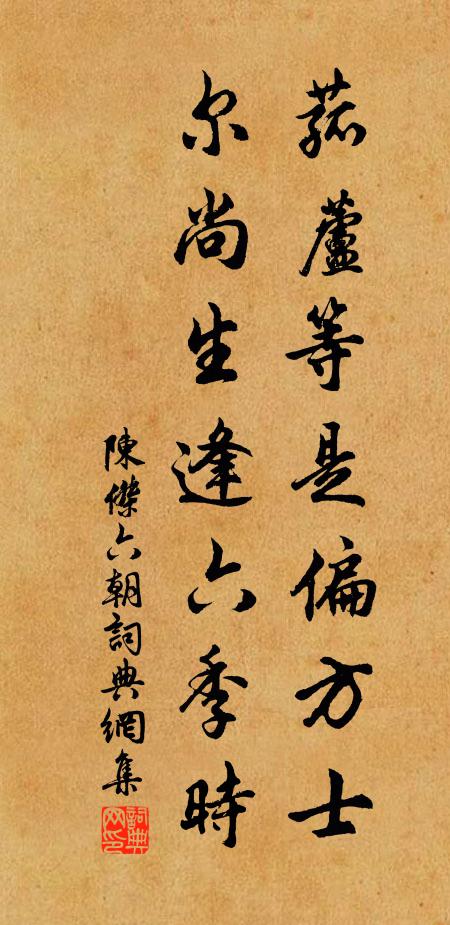 菰蘆等是偏方士
尔尚生逢六季時
陳傑六朝詞典網集
詞典網印